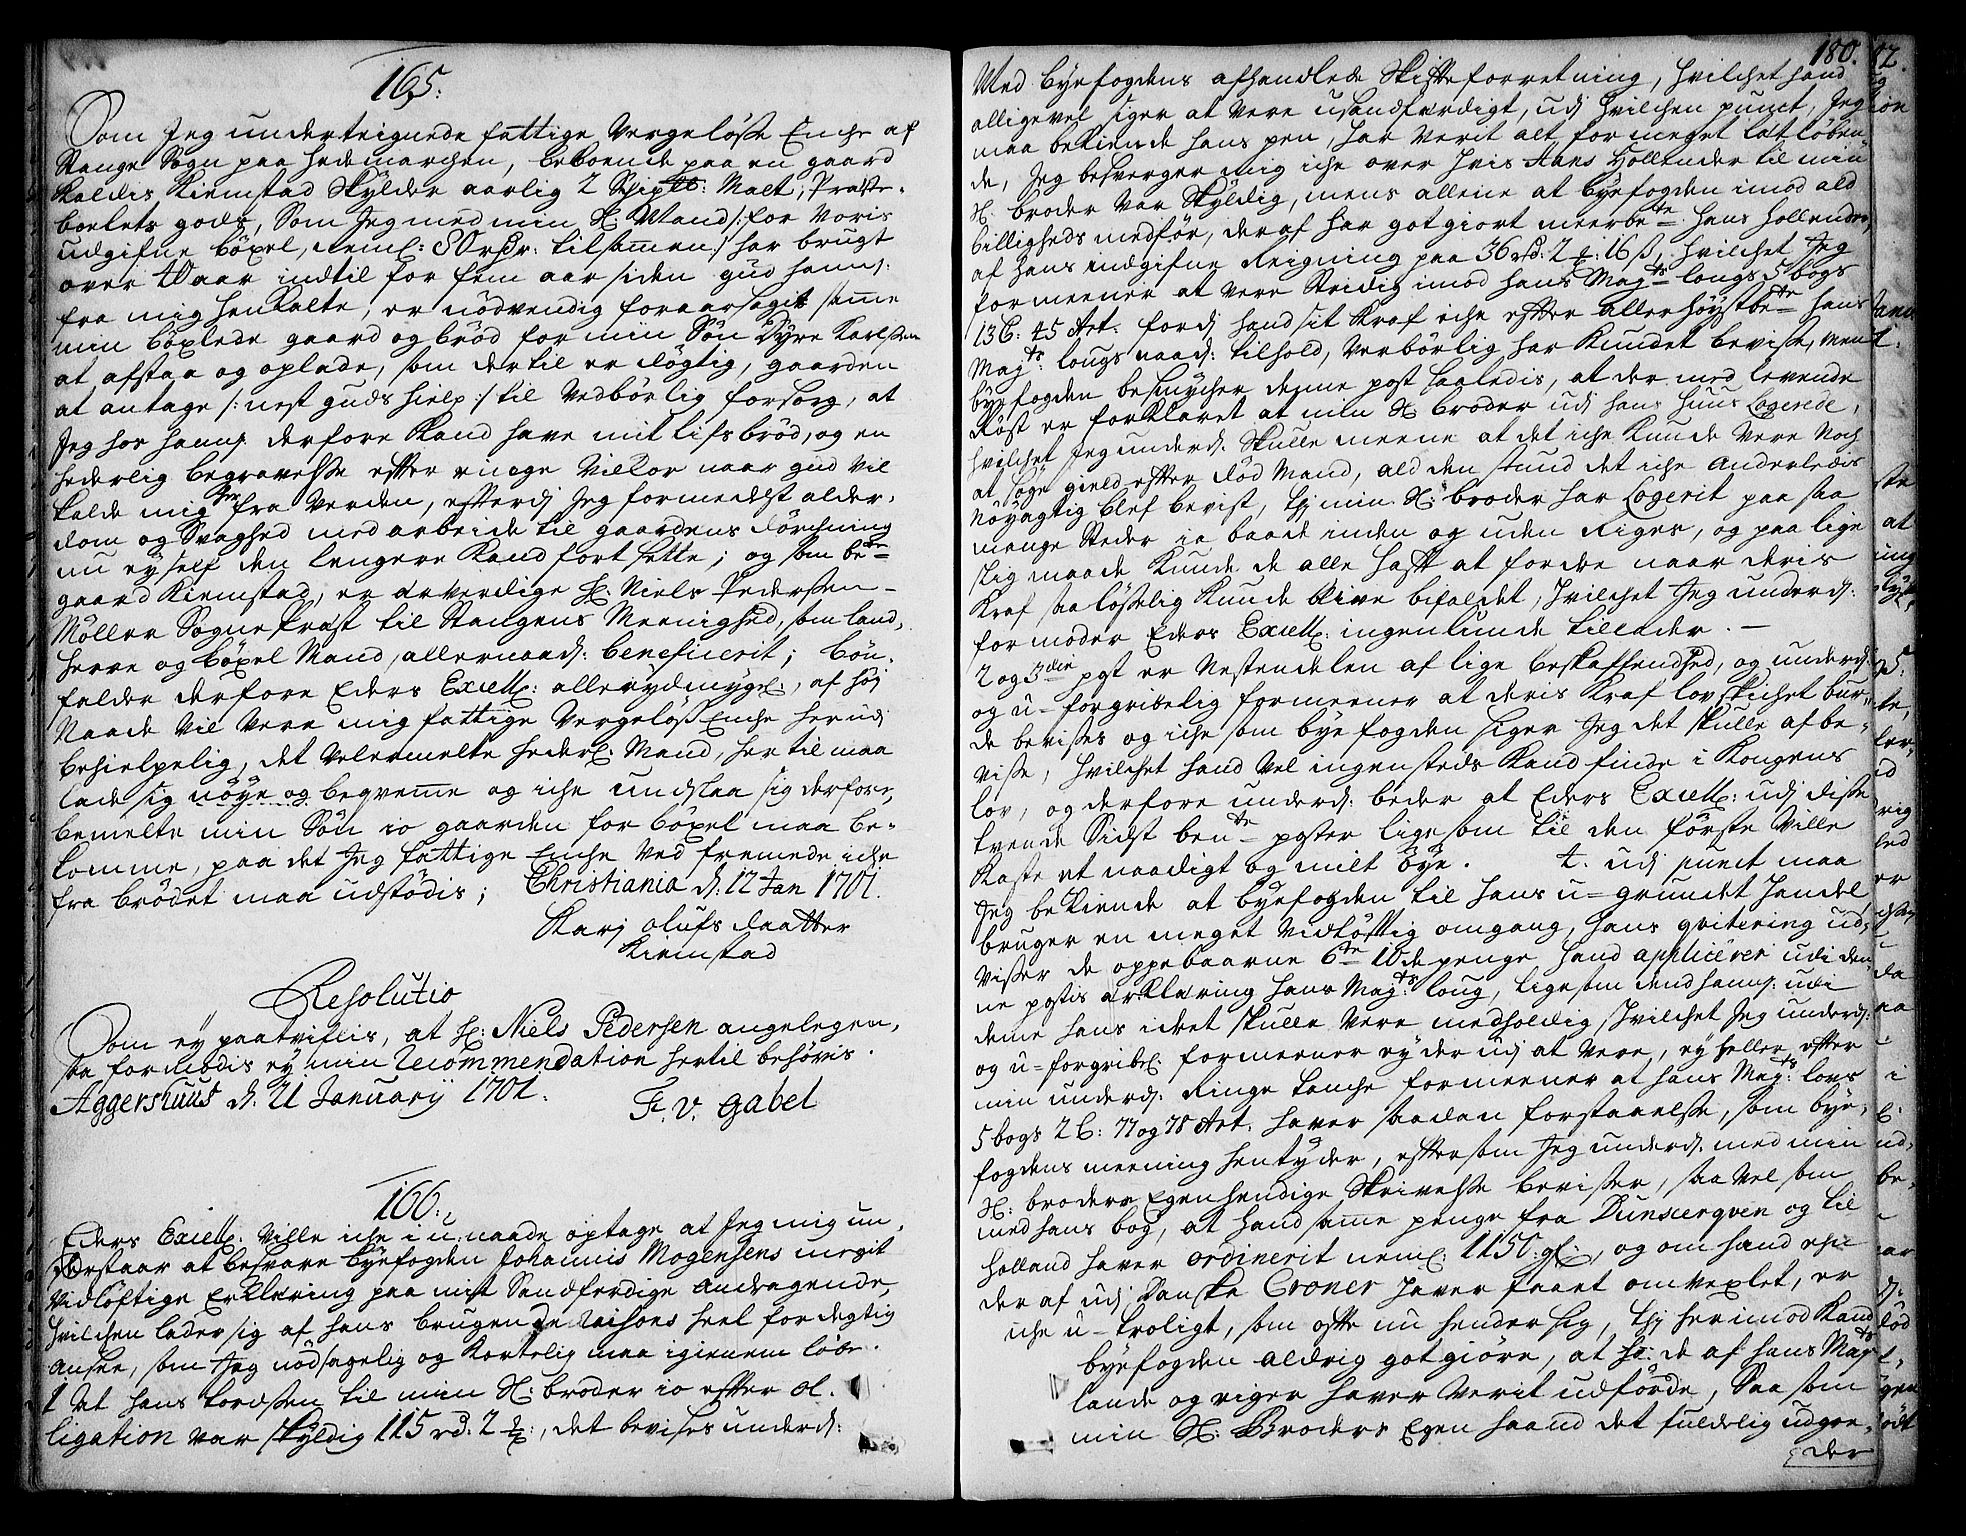 165.
Som Jeg underteignede fattige Vergeløße Enche af
Stange Sogn paa Hedemarchen, beboende paa en gaard
Kaldis Kiemstad Skylder aarlig 2 Schip℔: Malt, Præste-
boelets gods, Som Jeg med min Sl: Mand /: for Voris
udgifne böxel, neml: 80 rdr: tilsamen :/ har brugt
over 40 aar indtil for fem aar siden gud hannj:
fra mig henkalte, er nödvendig foraarsagit same
min böxlede gaard og bröd for min Sön Syver Karlsen
at afstaa og oplade, som dertil er dögtig, gaarden
at antage /: nest guds hielp :/ til Vedbörlig forsorg, at
Jeg hos hannj derfore kand have mit lifs bröd, og en
hederlig begravelße efter ringe Vilkor naar gud vil
kalde mig her fra Verden, efterdj Jeg formedelst alder-
dom og Svaghed med arbeide til gaardens dörchning
nu ey self den lengere kand fort sette; og som bete
gaard Kiemstad, er ærverdige Hr: Niels Pederßen
Möller Sogne Præst til Stangens Meenighed, som land-
herre og böxel Mand, allernaadj: beneficerit; bön-
falder derfore Eders Excell: allerydmygel, af höj
Naade vil være mig fattige Vergelöß Enche herudj
behielpelig, det Velermelte hederl: Mand, her til maa
lade sig nöye og beqveme og iche undslaa sig derfore,
bemelte min Sön jo gaarden for böxel maa be-
komme, paa det Jeg fattige Enche ved fremede iche
fra brödet maa udstödis; Christiania d: 12 Jan 1701.
Karj olufs daatter
Kiemstad
Resolutio
Som ey paatvifles, at Hr: Niels Pedersen angelegen,
saa formodis ey min Recommendation hertil behövis.
Aggershuus d: 21 Januarij 1701.
F. V. Gabel
166.
Eders Excell: Ville iche i u-naade optage at Jeg mig un-
derstaar at besvare byefogden Johannis Mogensens megit
Vidlöftige Erklæring paa mit Sandferdige Andragende,
hvilchen lader sig af hans brugende raisons heel fordegtig
ansee, som Jeg nödsagelig og kortelig maa igienem löbe.
1 At hans Lordßen til min Sl: broder jo efter ob-
ligation var skyldig 115 rd: 2 ℔:, det bevises underdj:
180.
Med byefogdens afhandlede Skifteforretning, hvilchet hand
alligevel siger at vere usandferdigt, udj hvilchen punct, Jeg
maa bekiende hans pen, har verit alt for meget latlöben-
de, Jeg besverger mig iche over hvis Hans Hollender til min
Sl: broder var skyldig, mens allene at byefogden imod ald
billigheds medför, deraf har got giort meerbete Hans Hollender,
af hans indgifne Reigning paa 36 rd: 2 ℔: 16 ß, hvilchet Jeg
formeener at vere Stridig imod hans Majts lougs 5 bogs
13 C: 45 Art: fordj hand sit Kraf iche efter allerhöystbete hans
Majts: lougs naadj: tilhold, Verbörlig har kundet bevise, ment
byefogden besmycher denne post saaledis, at der med levende
Röst er forklaret at min Sl: broder udj hans huus logerede,
hvilchet Jeg underdj. Skulle meene at det iche kunde være Noch
at söge gield efter död Mand, ald den stund det iche anderledis
nöyagtig blef bevist, thj min Sl: broder har Logerit paa saa
mange Steder ja baade inden og uden Riges, og paa lige
slig maade kunde de alle haft at fordre naar deris
Kraf saa lößelig kunde blive bifaldet, hvilchet Jeg underdj:
formoder Eders Excell: ingenlunde tillader. —
2 og 3die post er nestendelen af lige beskaffendhed, og underdj
og u-forgribelig formeener at deris Kraf lov skichet bur-
de bevises og iche som byefogden siger Jeg det skulle afbe-
viße, hvilchet hand vel ingensteds kand finde i Kongens
lov, og derfore underdj: beder at Eders Excell: udj diße
tvende Sidst bente poster ligesom til den förste Ville
kaste et naadigt og milt öye. 4. udj punct maa
Jeg bekiende at byefogden til hans u-grundet handel
bruger en meget Vidlöftig omgang, hans qvitering ud-
viser de oppebaarne 6te 10de penge hand applicerer udi den-
ne postis erklæring hans Majts: loug, ligesom dend hannj: udi
denne hans idret skulle være medholdig hvilchet Jeg underdj:
og u-forgribl: formeener ey der udj at være, ey heller efter
min underdj: Ringe tanche formeener at hans Majts: lovs
5 bogs 2 C: 77 og 78 Art: haver saadan forstaaelße, som bye-
fogdens meening hentyder, eftersom Jeg underdj. med min
Sl: broders Egenhendige Skrivelse beviser, saa vel som
med hans bog, at hand same penge fra Dunsverqven og til
Holland haver ordinerit neml: 1150: gl:, og om hand ehr
der af udj Danske Croner haver faaet omvexlet, er
iche u-troligt, som ofte nu hender sig, thj herimod kand
byefogden aldrig got giöre, at Sl: de af hans Majts
lande og riger haver verit udförde, Saa som
min Sl: Broders Egen haand det fuldelig udgre-
der